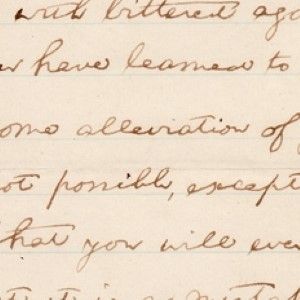 with bittered ago
have learned to
some alleviation of
not possible, except
that you will eve